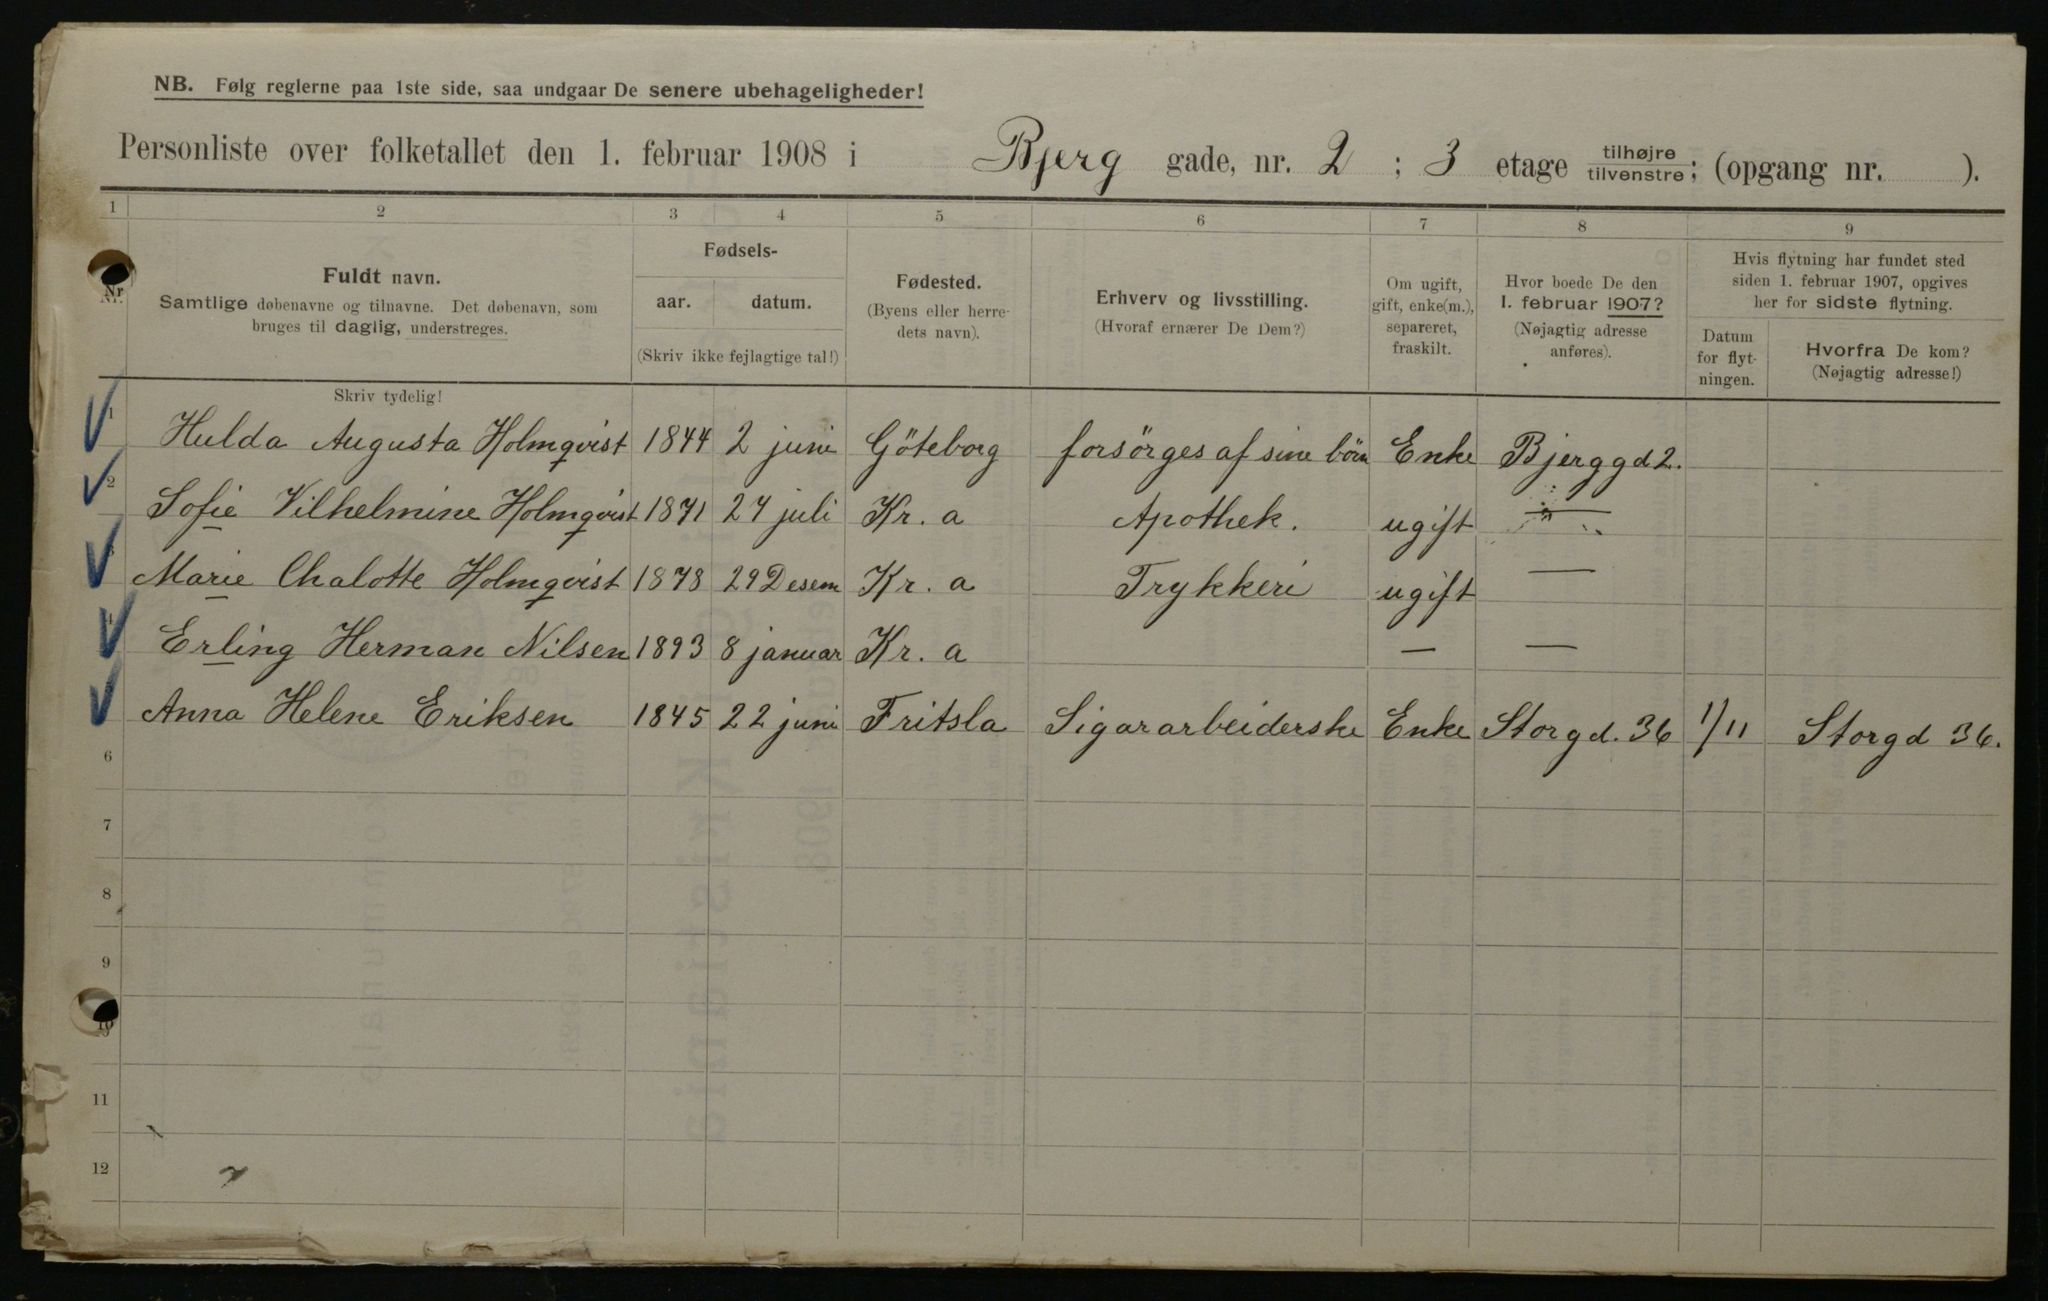 NB. Følg reglerne paa 1ste side, saa undgaar De senere ubehageligheder!
Personliste over folketallet den 1. februar 1908 i Bjerg gade, nr. 2 ; 3 etage tilhøjre tilvenstre; (opgang nr. ).
1 2 3 4 5 6 7 8 9
Nr.
Fuldt navn.
Samtlige døbenavne og tilnavne. Det døbenavn, som
bruges til daglig, understreges.
Fødsels-
aar. datum.
(Skriv ikke fejlagtige tal!)
Fødested.
(Byens eller herre-
dets navn).
Erhverv og livsstilling.
(Hvoraf ernærer De Dem?)
Om ugift,
gift, enke(m.),
separeret,
fraskilt.
Hvor boede De den
1. februar 1907?
(Nøjagtig adresse
anføres).
Hvis flytning har fundet sted
siden 1. februar 1907, opgives
her for sidste flytning.
Datum
for flyt-
ningen.
Hvorfra De kom?
(Nøjagtig adresse!)
Skriv tydelig!
1 Hulda Augusta Holmqvist 1844 2 juni Göteborg forsörges af sine börn Enke Bjerggd 2.
2 Sofie Vilhelmine Holmqvist 1871 27 juli Kr. a Apothek. ugift —
3 Marie Chalotte Holmqvist 1878 29 Desem Kr. a Trykkeri ugift —
4 Erling Herman Nilsen 1893 8 januar Kr. a — —
Anna Helene Eriksen 1845 22 juni Fritsla Sigararbeiderske Enke Storgd. 36 1/11 Storgd 36.
6
7
8
9
10
11
12